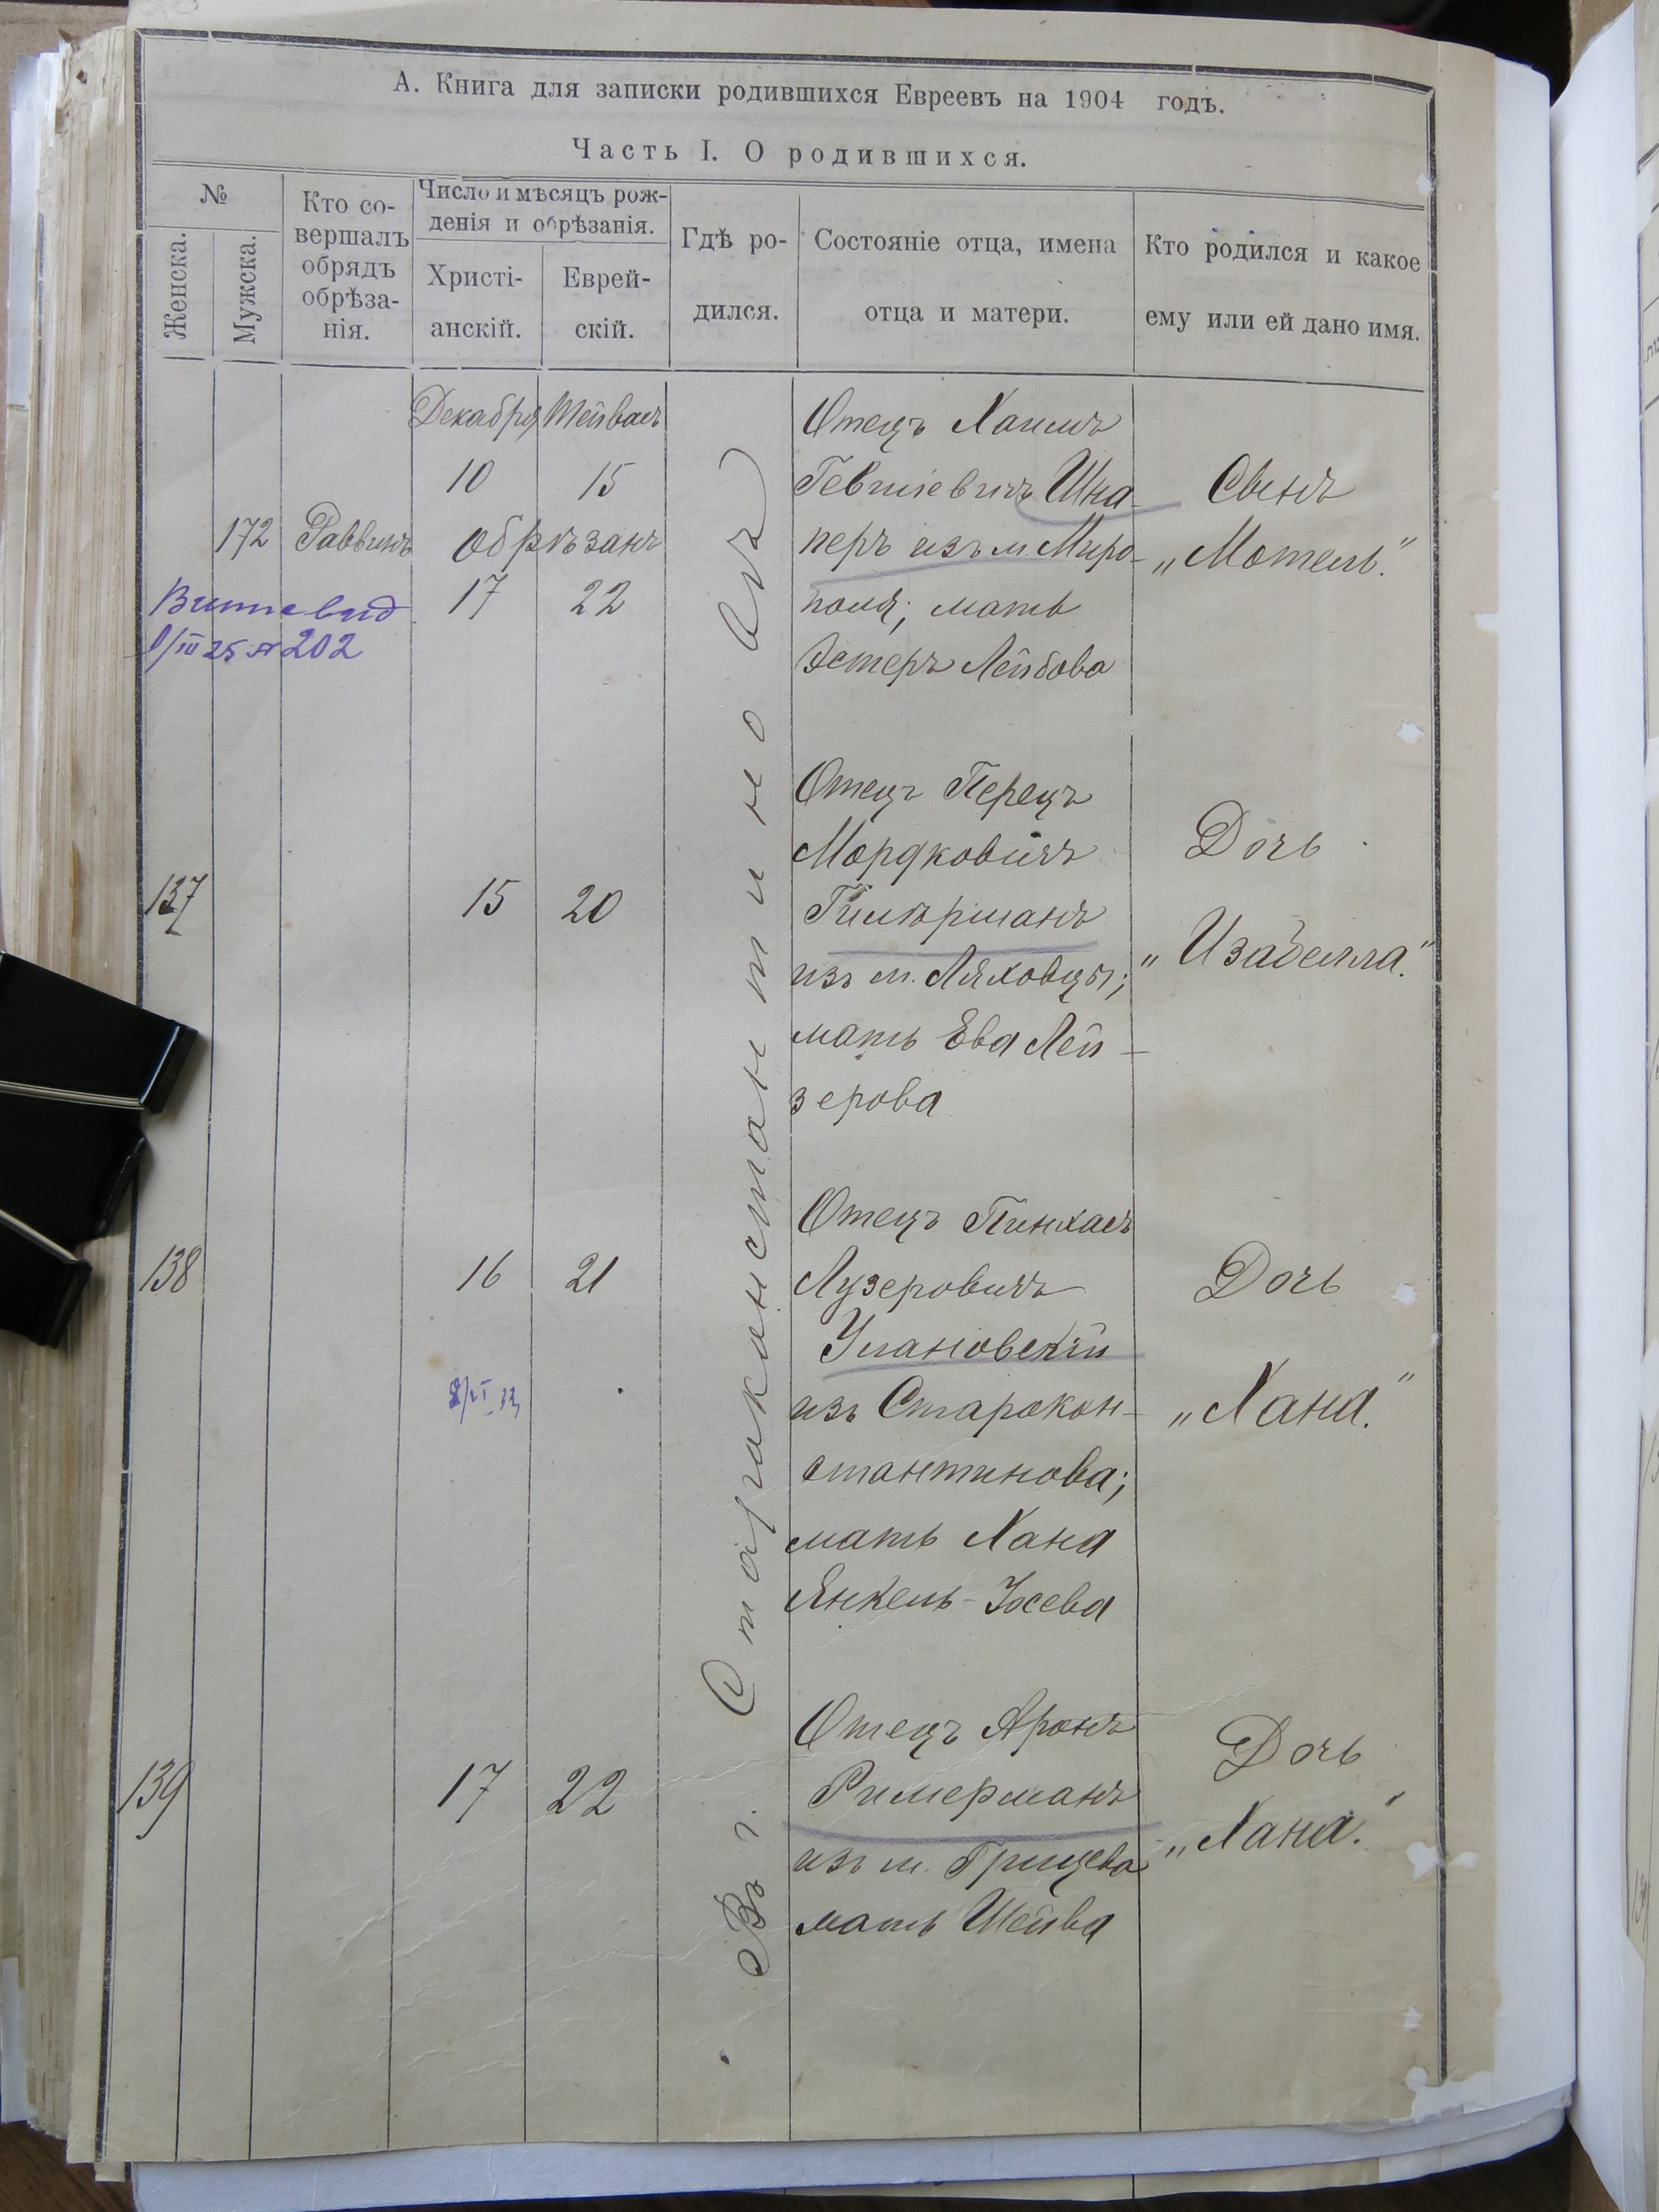 А. Книга для записки родившихся Евреевъ на 1904 годъ.
Часть I. О родившихся.
№
Женска.
Мужска.
Кто со-
вершалъ
обрядъ
обрѣза-
нія.
Число и мѣсяцъ рож-
денія и обрѣзанія.
Христі-
анскій.
Еврей-
скій.
Гдѣ ро-
дился.
Состояніе отца, имена
отца и матери.
Кто родился и какое
ему или ей дано имя.
Въ г. Староконстантиновѣ
172
Раввинъ
Декабря Тейвасъ
10 15
обрѣзанъ
17 22
Отецъ Хаимъ
Гевшіевичъ Шна-
перъ изъ м. Миро-
поля; мать
Эстеръ Лейбова
Сынъ
„Мотель."
202
137
15 20
Отецъ Перецъ
Мордковичъ
изъ м. Ляховцы;
мать Ева Лей-
зерова
Дочь
„Изабелла."
138
16 21
Отецъ Пинхасъ
Лузеровичъ
Улановскій
изъ Старокон-
стантинова;
мать Хана
Янкель-Іосева
Дочь
„Хана."
139
17 22
Отецъ Аронъ
Римерманъ
изъ м. Грицева
мать Шейва
Дочь
„Хана."